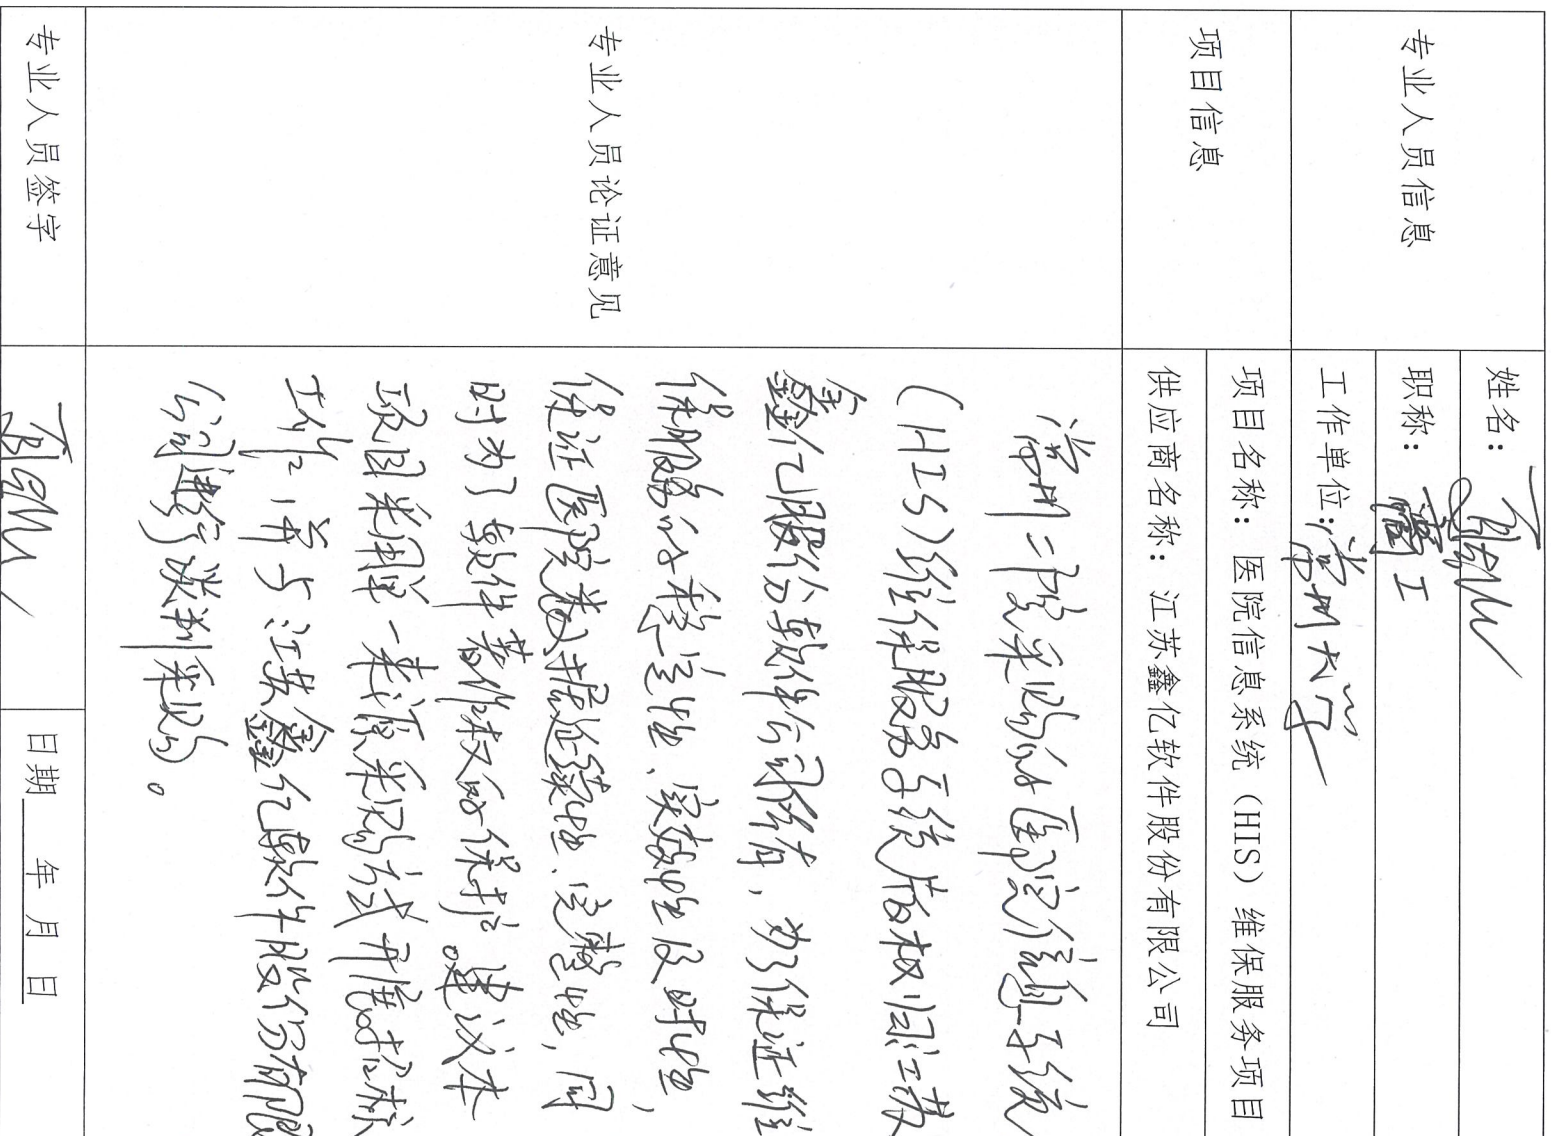 专业人员信息
姓名：
职称： 高工
工作单位：常州大学
项目信息
项目名称： 医院信息系统（HIS）维保服务项目
供应商名称： 江苏鑫亿软件股份有限公司
专业人员论证意见
常州二院采购的医院信息系统
（HIS）维保服务系统版权归江苏
鑫亿股份软件公司所有，为了保证维
保服务的稳定性、实效性及时性，
保证医院数据连续性、完整性，同
时为了软件著作权的保护。建议本
项目采用单一来源采购方式开展招标
工作，并与江苏鑫亿软件股份有限
公司进行谈判采购。
专业人员签字
日期 年 月 日